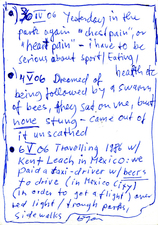 3 IV 06 Yesterday in the
park again "chest pain", or
"heart pain" - i have to be
serious about sport/Eating/
health etc
4 V 06 Dreamed of
being followed by a swarm
of bees, they sat on me, but
none stung - came out of
it unscathed
6 V 06 Travelling 1986 w/
Kent Leach in Mexico: we
paid a taxi-driver w/ beers
to drive (in Mexico City)
(in order to get a flight) over
red light / trough parks,
sidewalks